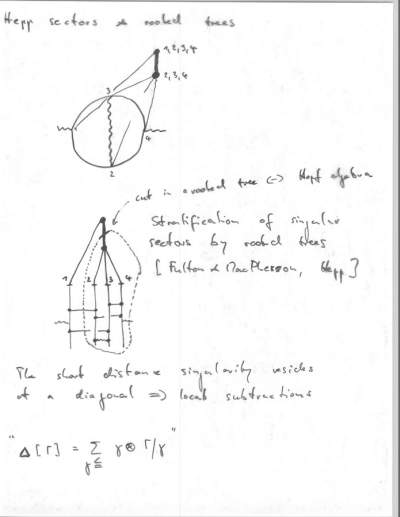 Hepp sectors & rooted trees
1,2,3,4
2,3,4
3
4
2
cut in a rooted tree <-> Hopf algebra
Stratification of singular
sectors by rooted trees
[Fulton & MacPherson, Hepp]
1 2 3 4
The short distance singularity resides
at a diagonal => local subtractions
"Δ[Γ] = Σ γ⊗Γ/γ"
γ⊆